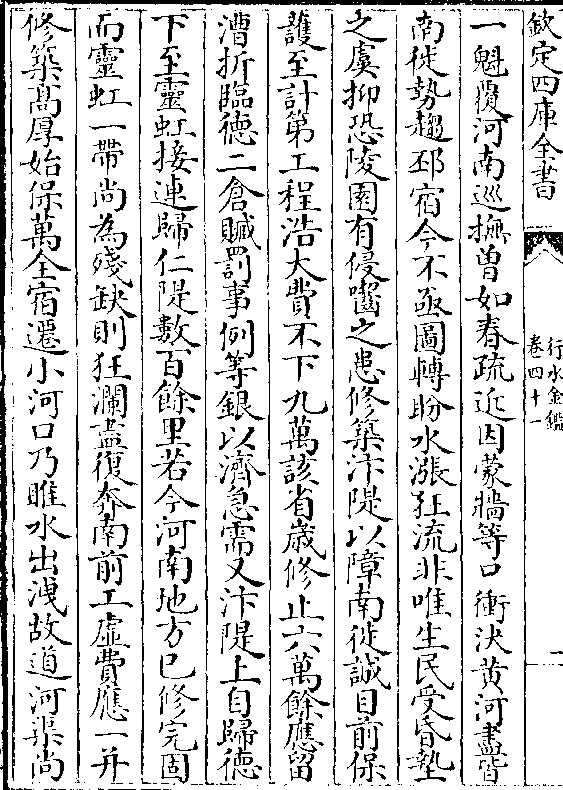 欽定四庫全書
行水金鑑
卷四十一
二
一魁覆河南巡撫曽如春疏近因蒙牆等口衝决黄河盡皆
南徙勢趨邳宿今不亟圖轉盼水漲狂流非唯生民受昏墊
之虞抑恐陵園有侵嚙之患修築汴隄以障南徙誠目前保
護至計第工程浩大費不下九萬該省歲修止六萬餘應留
漕折臨德二倉贓罰事例等銀以濟急需又汴隄上自歸德
下至靈虹接連歸仁隄數百餘里若今河南地方已修完固
而靈虹一帶尚為殘缺則狂瀾盡復奔南前工虛費應一并
修築髙厚始保萬全宿遷小河口乃睢水出洩故道河渠尚